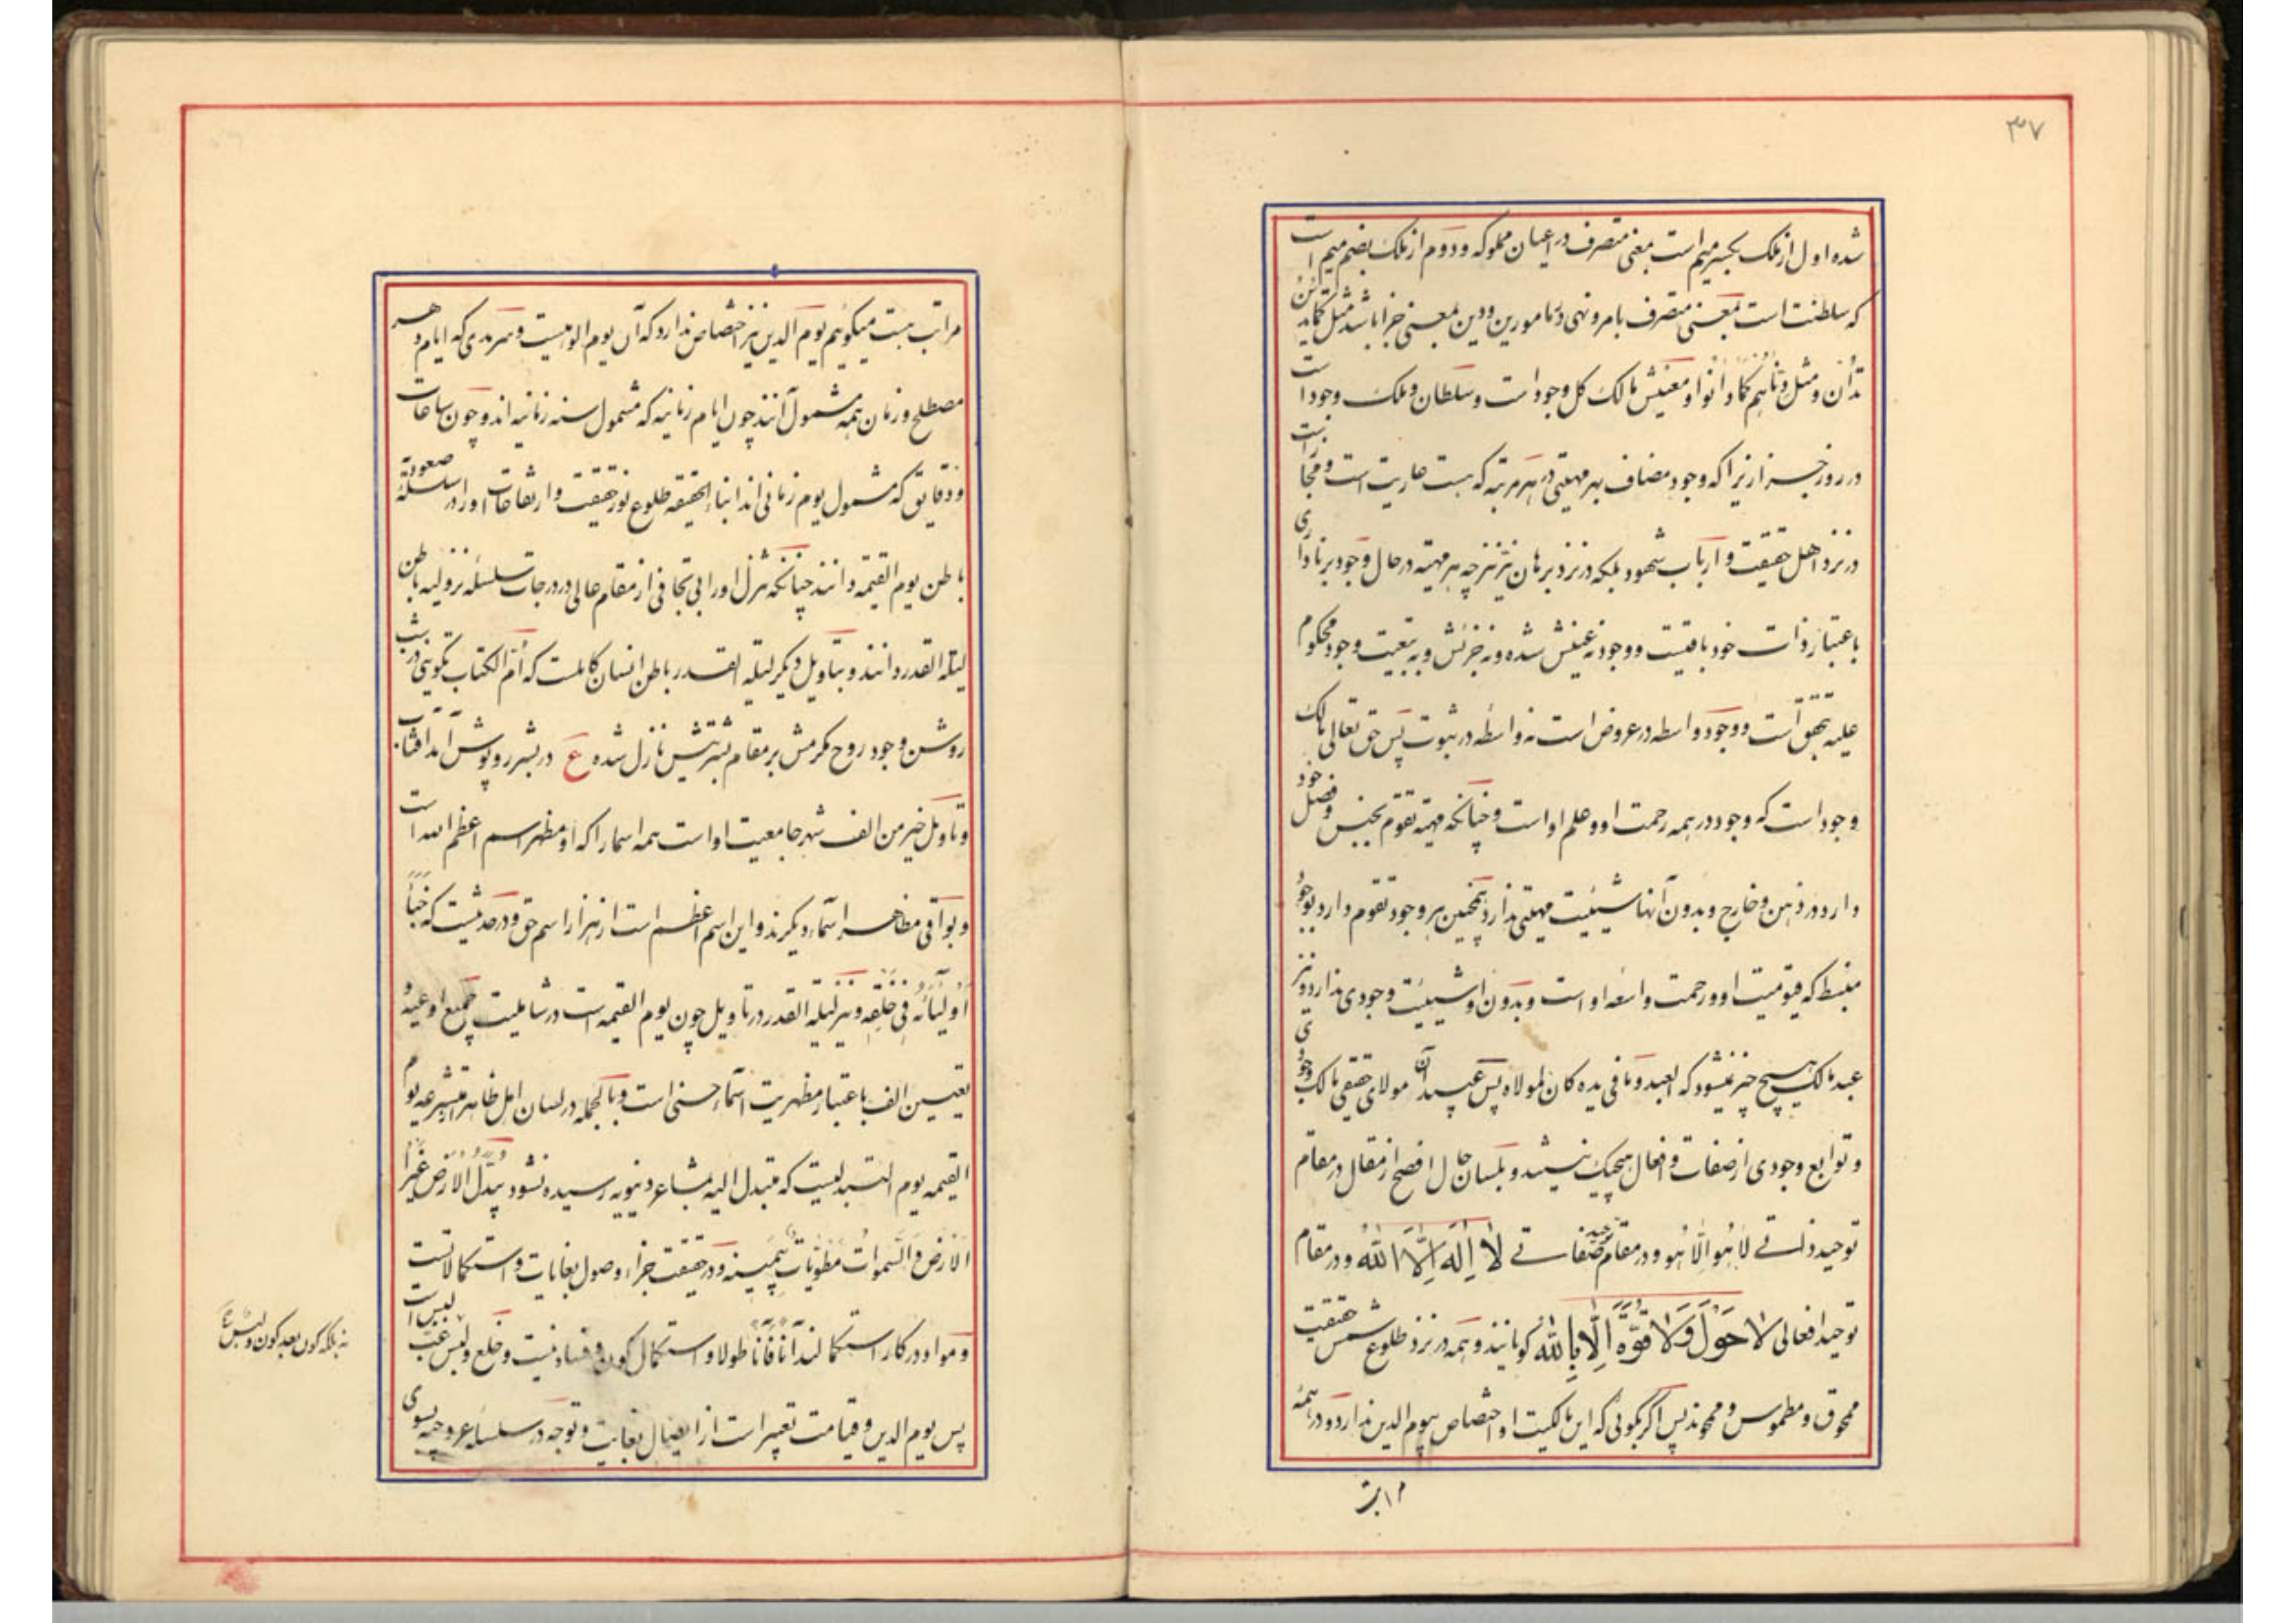 ۳۷
شده اول از ملک بکسر میم است بمعنی متصرف در اعیان مملوکه و دوم از ملک بضم میم است
که سلطنت است بمعنی متصرف بامر و نهی در مامورین و دین بمعنی جزا باشد مثل کما تدین
تدان و مثل دناهم کما دانوا و معنیش مالک کل وجود است و سلطان و ملک وجود است
در روز جزا زیرا که وجود مضاف بهر مهیتی در هر مرتبه که هست عاریت است و مجازیست
در نزد اهل حقیقت و ارباب شهود بلکه در نزد برهان نیز چه هر مهیة در حال وجود برناداری
باعتبار ذات خود باقیست و وجود نه عینش شده و نه جزئش و به تبعیت وجود محکوم
علیه بتحقق است و وجود واسطه در عروض است نه واسطه در ثبوت پس حق تعالی مالک
وجود است که وجود در همه رحمت او و علم او است و چنانکه مهیة تقوم بجنس و فصل خود
دارد در ذهن و خارج و بدون آنها شیئیت مهیتی ندارد همچنین هر وجود تقوم دارد بوجود
منبسط که قیومیت او و رحمت واسعه او است و بدون او شیئیت وجودی ندارد و نیز
عبد مالک هیچ چیز نمیشود که العبد و ما فی یده کان لمولاه پس عبید آن مولای حقیقی مالک وجودی
و توابع وجودی از صفات و افعال هیچیک نیستند و بلسان حال افصح از مقال در مقام
توحید ذاتی لا هو الا هو و در مقام توحید صفاتی لا اله الا الله و در مقام
توحید افعالی لا حول ولا قوة الا بالله گویانند و همه در نزد طلوع شمس حقیقت
ممحوق و مطموس و محوند پس اگر بگوئی که این مالکیت او اختصاص بیوم الدین ندارد و در همه
مراتب
مراتب هست میگوئیم یوم الدین نیز اختصاص ندارد که آن یوم الوهیت و سرمدی که ایام دهر
مصطلح و زمان همه مشمول آنند چون ایام زمانیه که مشمول سنه زمانیه اند و چون ساعات
و دقایق که مشمول یوم زمانی اند ابناء الحقیقه طلوع نور حقیقت و ارتفاعات او را در سلسلهٔ صعودیه
باطن یوم القیمه دانند چنانکه تنزل او را بی تجافی از مقام عالی در درجات سلسله نزولیه باطن
لیلة القدر دانند و بتاویل دیگر لیلة القدر باطن انسان کاملست که ام الکتاب تکوینی در شب
روشن وجود روح مکرمش بر مقام بشریتش نازل شده ع در بشر روپوش آمد آفتاب
و تاویل خیر من الف شهر جامعیت او است همه اسما را که او مظهر اسم اعظم الله است
و بواقی مظاهر اسماء دیگرند و این اسم اعظم است از هزار اسم حق و در حدیثیست که خبأ
اولیائه فی خلقه و نیز لیلة القدر در تاویل چون یوم القیمه است در شاملیت جمیع اوعیه و
تعیین الف باعتبار مظهریت اسماء حسنی است و بالجمله در لسان اهل ظاهر متشرعه یوم
القیمه یوم التبدلیست که متبدل الیه بمشاعر دنیویه رسیده نشود یبدل الارض غیر
الارض و السموات مطویات بیمینه و در حقیقت جزاء وصول بغایات و استکمالاتست
و مواد در کار استکمالند آنا فآنا طولا و استکمال کون و فساد نیست و خلع و لبس غب لبس است
پس یوم الدین و قیامت تعبیر است از ایصال بغایت و توجه در سلسله عروجیه بسوی
نه بلکه کون بعد کون و لبس